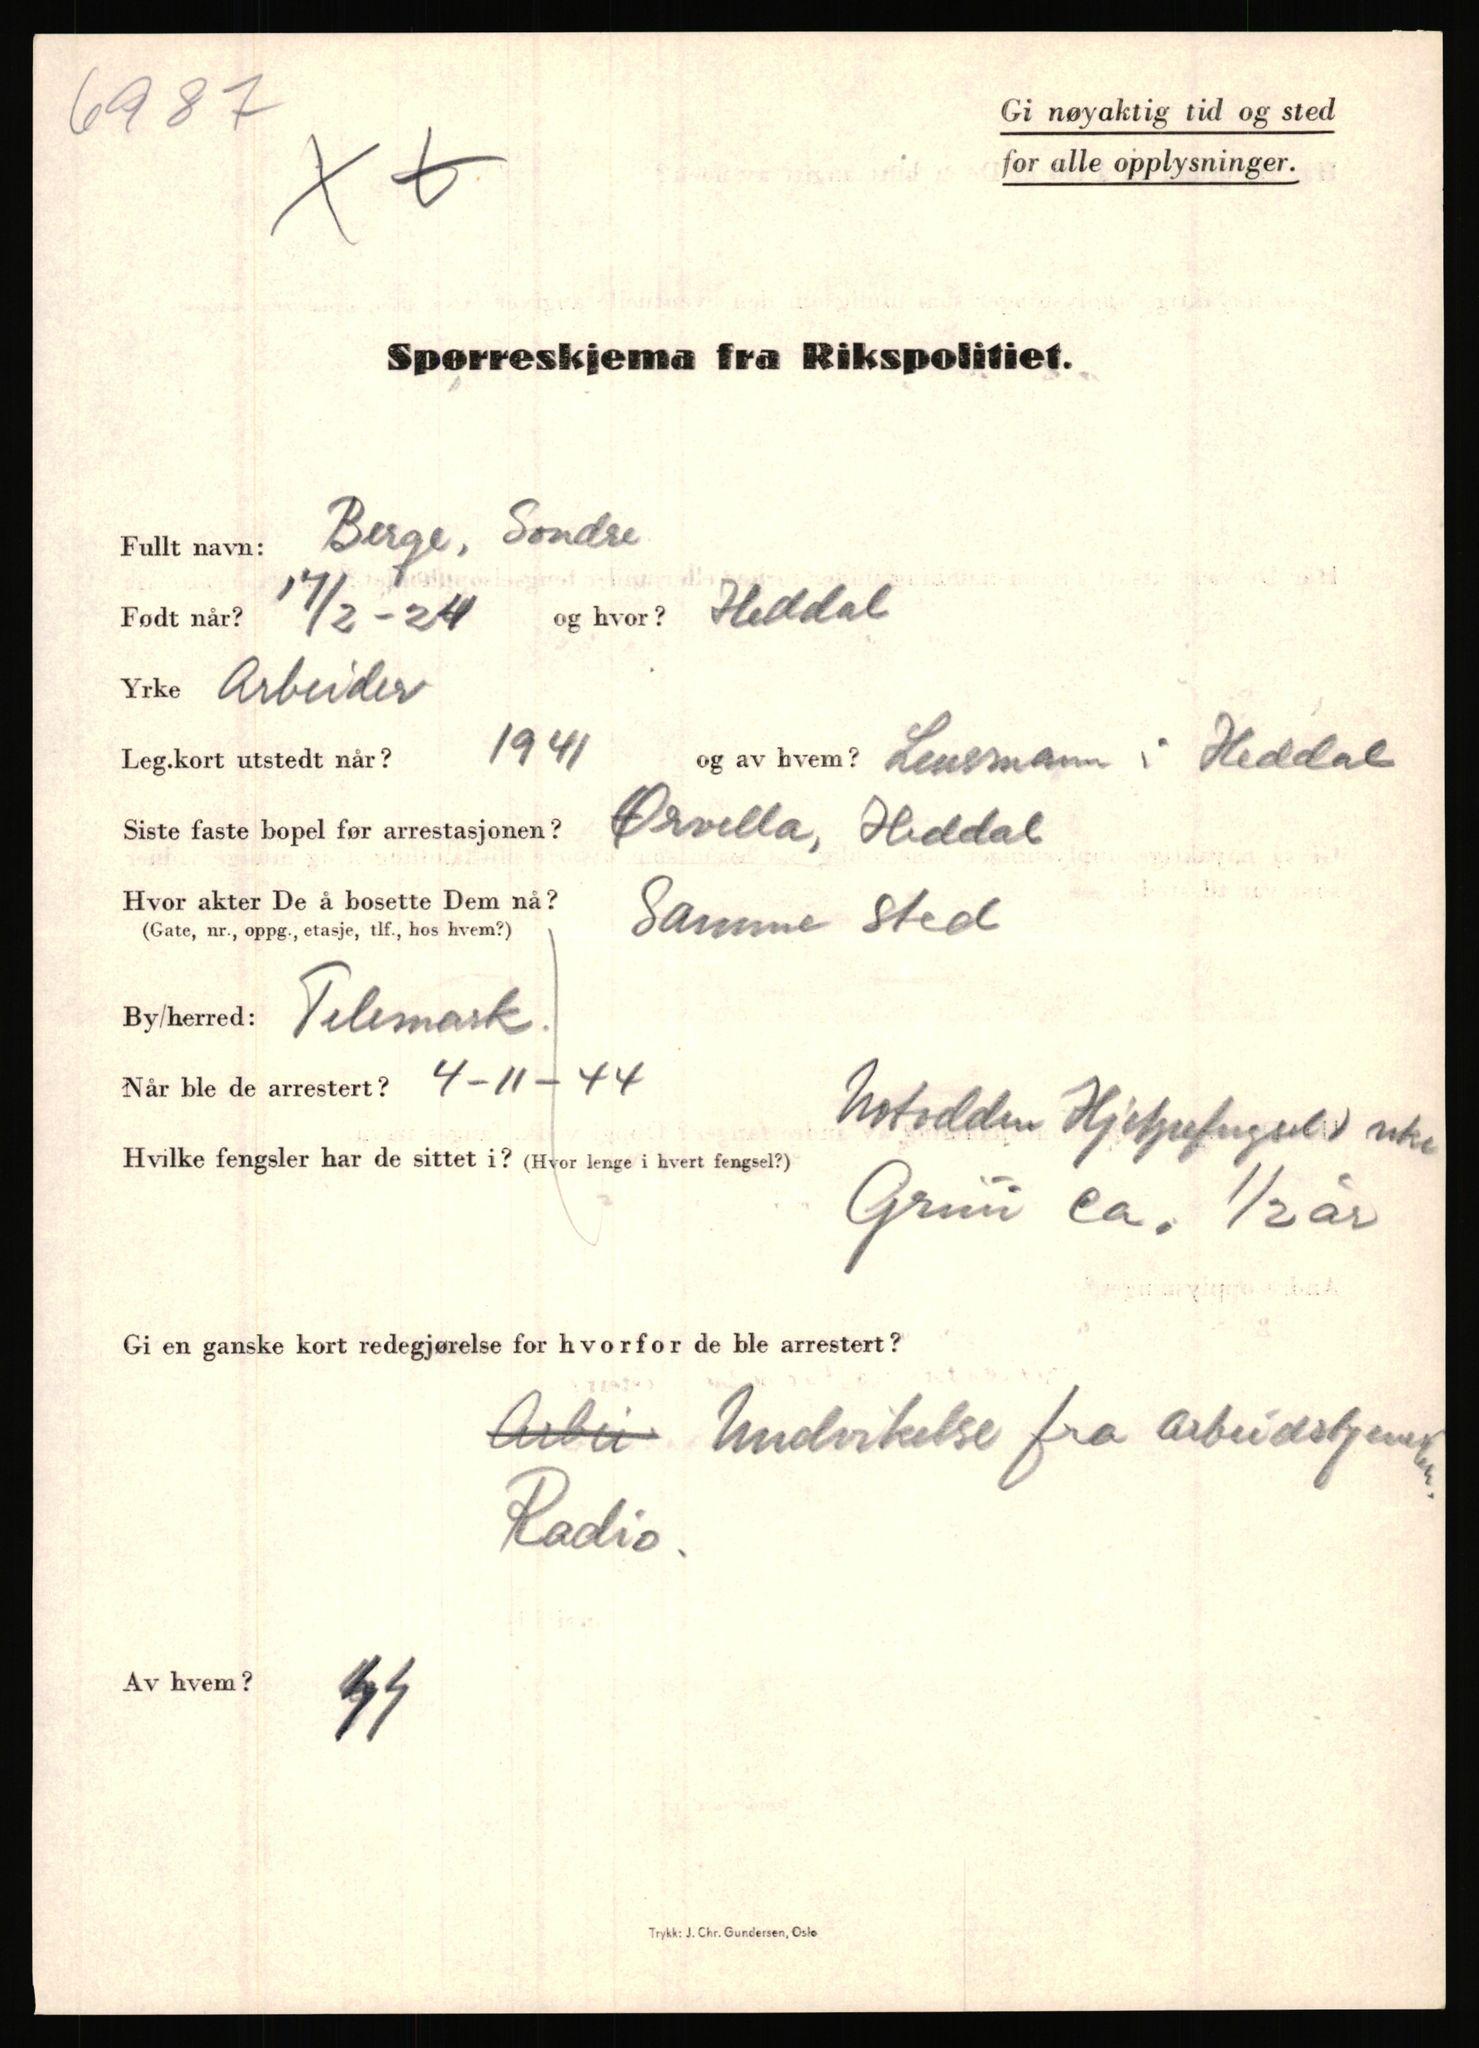 6987
Gi nøyaktig tid og sted
for alle opplysninger.
X t
Spørreskjema fra Rikspolitiet.
Fullt navn: Berge, Sondre
Født når? 17/2-24 og hvor? Heddal
Yrke Arbeider
Leg.kort utstedt når? 1941 og av hvem? Lensmann i Heddal
Siste faste bopel før arrestasjonen? Ørvella, Heddal
Hvor akter De å bosette Dem nå? Samme sted
(Gate, nr., oppg., etasje, tlf., hos hvem?)
By/herred: Telemark.
Når ble de arrestert? 4-11-44
Notodden Hjelpefengsel 1 uke
Hvilke fengsler har de sittet i? (Hvor lenge i hvert fengsel?)
Grini ca. 1/2 år
Gi en ganske kort redegjørelse for hvorfor de ble arrestert?
Arbei Undvikelse fra arbeidstjenesten.
Radio.
Av hvem?
Trykk: J. Chr. Gundersen, Oslo